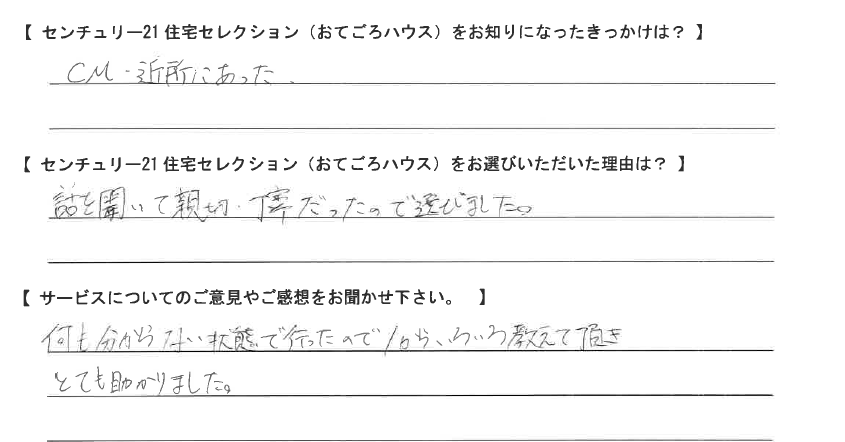 【 センチュリー21 住宅セレクション（おてごろハウス）をお知りになったきっかけは？ 】
CM・近所にあった、
【 センチュリー21 住宅セレクション（おてごろハウス）をお選びいただいた理由は？ 】
話を聞いて親切・丁寧だったので選びました。
【 サービスについてのご意見やご感想をお聞かせ下さい。 】
何も分からない状態で行ったので1からいろいろ教えて頂き
とても助かりました。